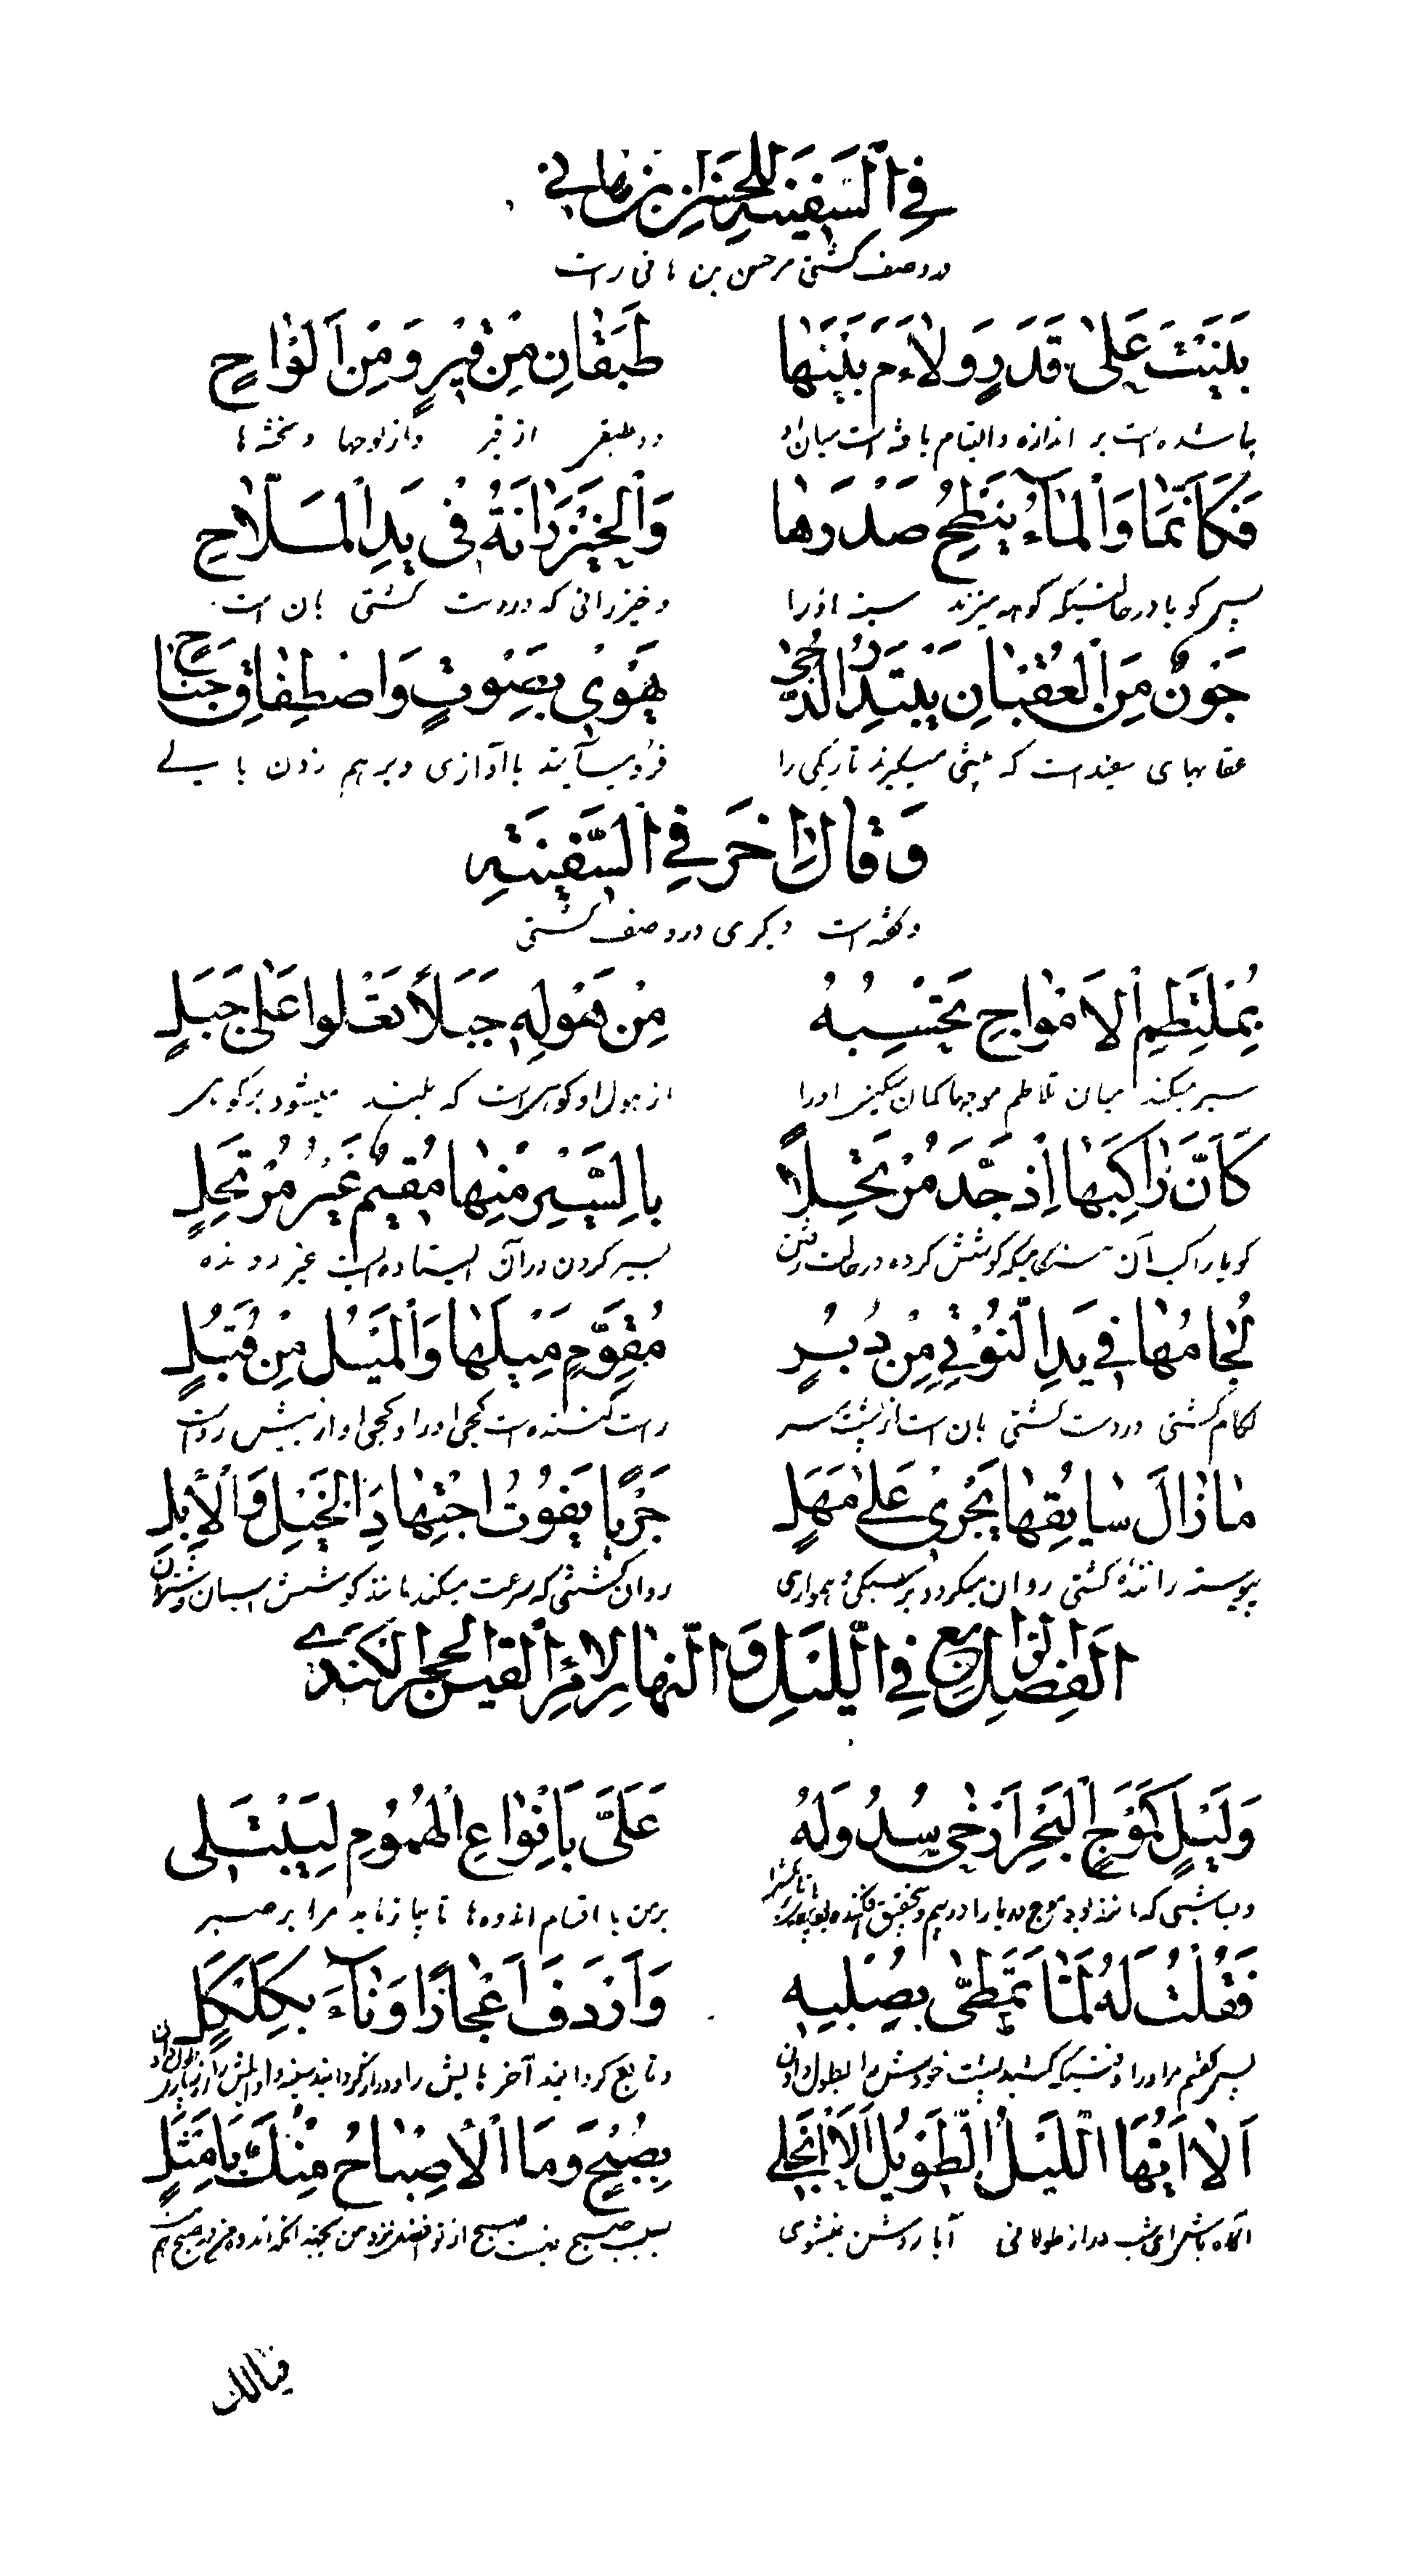 فِي السَّفِينَةِ لِلْحَسَنِ بْنِ هَانِي
در وصف کشتی مر حسن بن هانی راست
بُنِيَتْ عَلَى قَدَرٍ وَلَاءَمَ بَيْنَهَا طَبَقَانِ مِنْ قِيرٍ وَمِنْ أَلْوَاحٍ
بنا شده است بر اندازه و التیام یافته است میان او دو طبقه از قیر و از لوحها و تخته ها
فَكَأَنَّمَا وَالْمَاءُ يَنْطَحُ صَدْرَهَا وَالْخَيْزُرَانَةُ فِي يَدِ الْمَلَّاحِ
پس گویا در حالتیکه میزند سینه او را و خیزرانی که در دست کشتی بان است
جَوْنٌ مِنَ الْعِقْبَانِ يَبْتَدِرُ الدُّجَى يَهْوِي بِصَوْتٍ وَاصْطِفَاقِ جَنَاحٍ
عقابهای سفید است که پیشی میگیرند تاریکی را فرود میآیند با آوازی و برهم زدن بالی
وَقَالَ آخَرُ فِي السَّفِينَةِ
و گفته است دیگری در وصف کشتی
بِمُلْتَطِمِ الْأَمْوَاجِ تَحْسِبُهُ مِنْ هَوْلِهِ جَبَلًا تَعْلُوا عَلَى جَبَلٍ
سیر میکند میان تلاطم موجها گمان میکنی او را از هول او کوهی است که بلند میشود بر کوهی
كَأَنَّ رَاكِبَهَا إِذْ جَدَّ مُرْتَحِلًا بِالسَّيْرِ مِنْهَا مُقِيمٌ غَيْرُ مُرْتَحِلٍ
گویا راکب آن هنگامیکه کوشش کرده در حالت رفتن بسیر کردن در آن ایستاده است غیر رونده
لِجَامُهَا فِي يَدِ النُّوتِيِّ مِنْ دُبُرٍ مُقَوِّمٍ مَيْلَهَا وَالْمَيْلُ مِنْ قُبُلٍ
لگام کشتی در دست کشتی بان است از پشت سر راست کننده است کجی او را و کجی او از پیش رو است
مَا زَالَ سَايِقُهَا يَجْرِي عَلَى مَهَلٍ جَرْيًا يَفُوتُ اجْتِهَادَ الْخَيْلِ وَالْإِبِلِ
پیوسته راننده کشتی روان میگردد بر سبکی و همواری روان کشتنی که سرعت میکند مانند کوشش اسبان و شتران
اَلْفَصْلُ الرَّابِعُ فِي اللَّيْلِ وَالنَّهَارِ لِامْرِئِ الْقَيْسِ الْحُجْرِ الْكِنْدِيِّ
وَلَيْلٍ كَمَوْجِ الْبَحْرِ أَرْخَى سُدُولَهُ عَلَيَّ بِأَنْوَاعِ الْهُمُومِ لِيَبْتَلِي
و بسا شبی که مانند بود موج دریا را بر من با اقسام اندوه ها تا بیازماید مرا بر صبر
فَقُلْتُ لَهُ لَمَّا تَمَطَّى بِصُلْبِهِ وَأَرْدَفَ أَعْجَازًا وَنَاءَ بِكَلْكَلٍ
پس گفتم مر او را وقتیکه کشید پشت خودش را و تابع گردانید آخر هایش را
أَلَا أَيُّهَا اللَّيْلُ الطَّوِيلُ أَلَا انْجَلِي بِصُبْحٍ وَمَا الْإِصْبَاحُ مِنْكَ بِأَمْثَلٍ
آگاه باش ای شب دراز طولانی آیا روشن نمیشوی بسبب صبح نیست صبح از تو
فیالك